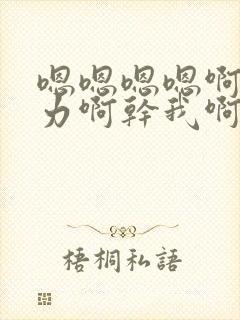 嗯嗯嗯嗯啊
力啊幹我啊
梧桐私語